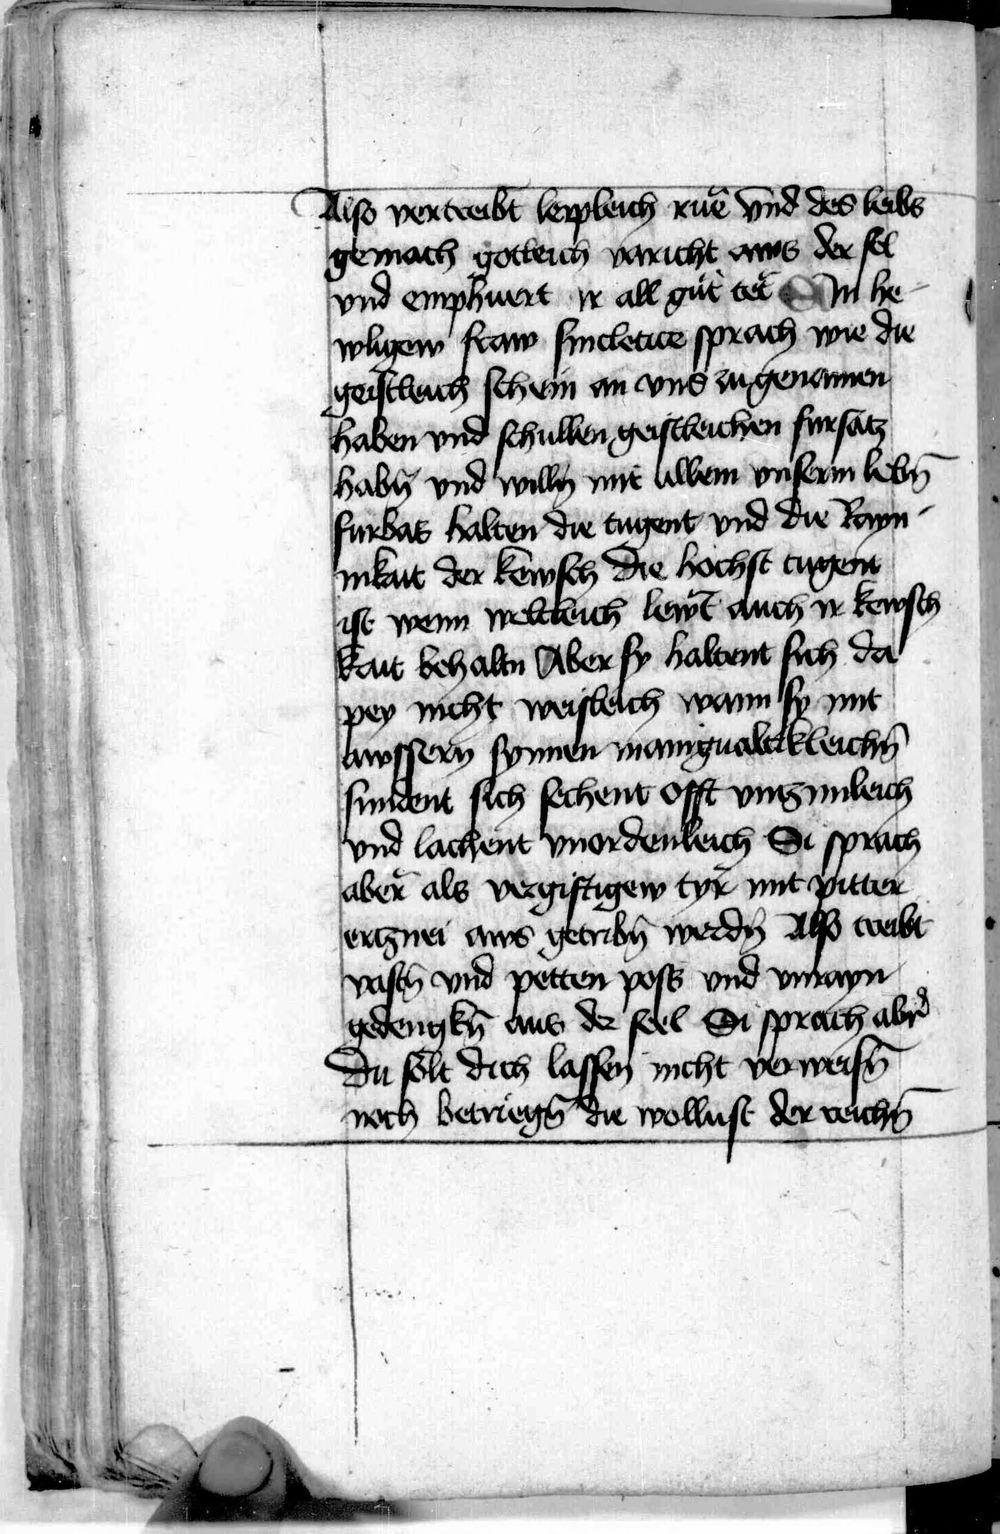 Also vertreibt leypleich rue vnd des leibs
gemach gotleich varicht aws der sel
vnd emphuert ir all gut tet Ain he-
wligew fraw sincletice sprach wie die
geistleich schein an vns zugenamen
haben vnd schullen geistleichen fursatz
habn̄ vnd willn̄ mit allem vnserm lebn̄
furbas halten die tugent vnd die Rayn-
nkait der kewsch Die hochst tugent
ist wenn weltleich lewt auch ir kewsch
kait behaltn Aber sy haltent sich da
pey nicht weisleich wann sy mit
awssern synnen manigualtikleichn̄
sundent sich sechent offt vnzimleich
vnd lachent vnordenleich Si sprach
aber als vergiftigew tyr mit pitter
ertznei aws getribn̄ werdn̄ Also treibt
vastn̄ vnd petten poss vnd vnrayn
gedengkn̄ aus der seel Si sprach aber
Du solt dich lassen nicht verweisn̄
noch betriegn̄ die wollust der reichn̄